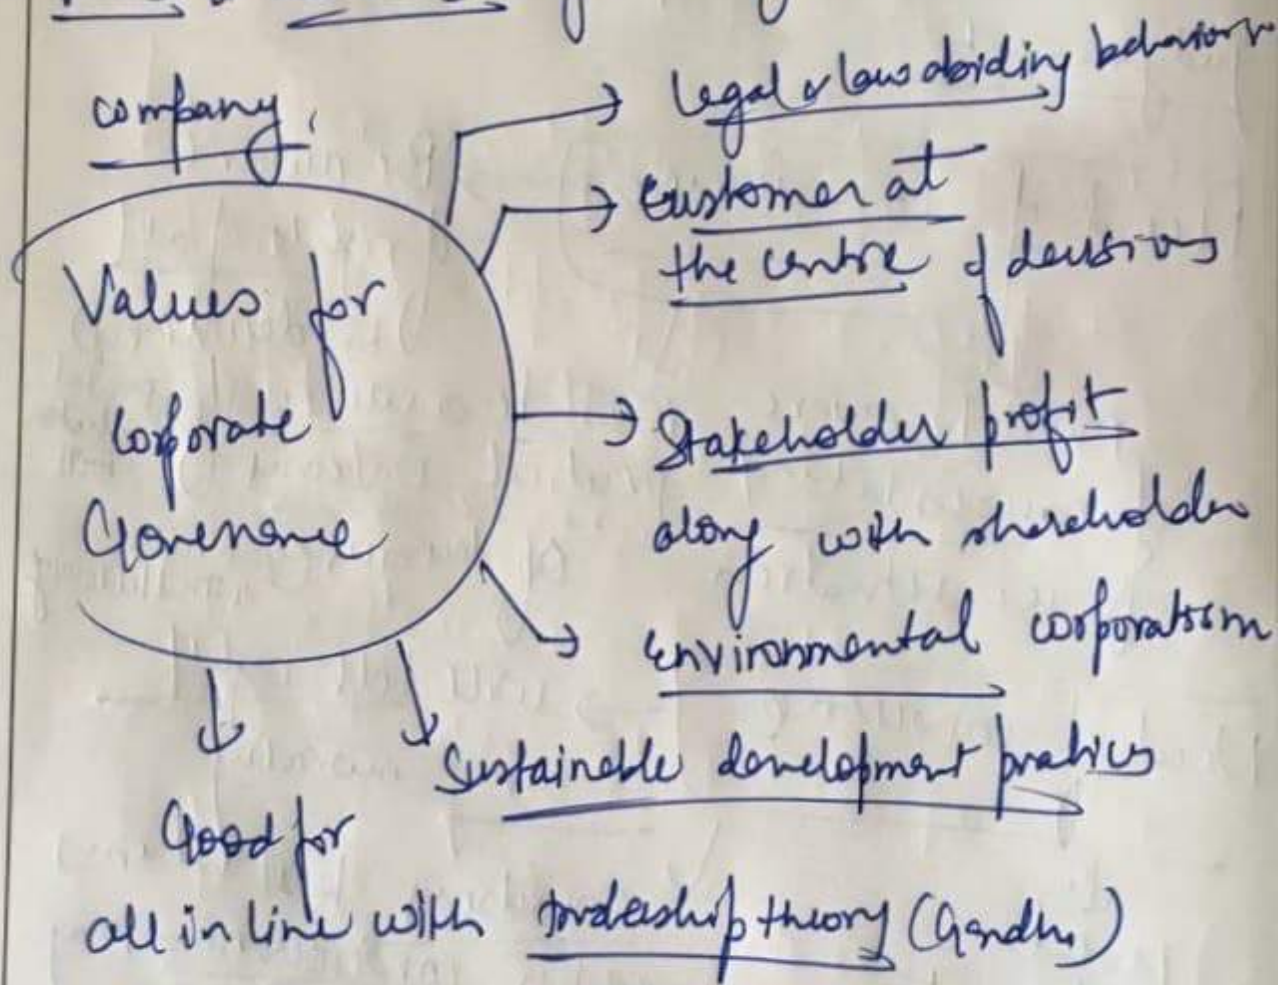 company,
Values for
Corporate
Governance
Legal & law abiding behaviour
Customer at
the centre of decisions
Stakeholder profit
along with shareholder
Environmental corporatism
Sustainable development practices
Good for
all in line with trusteeship theory (Gandhi)